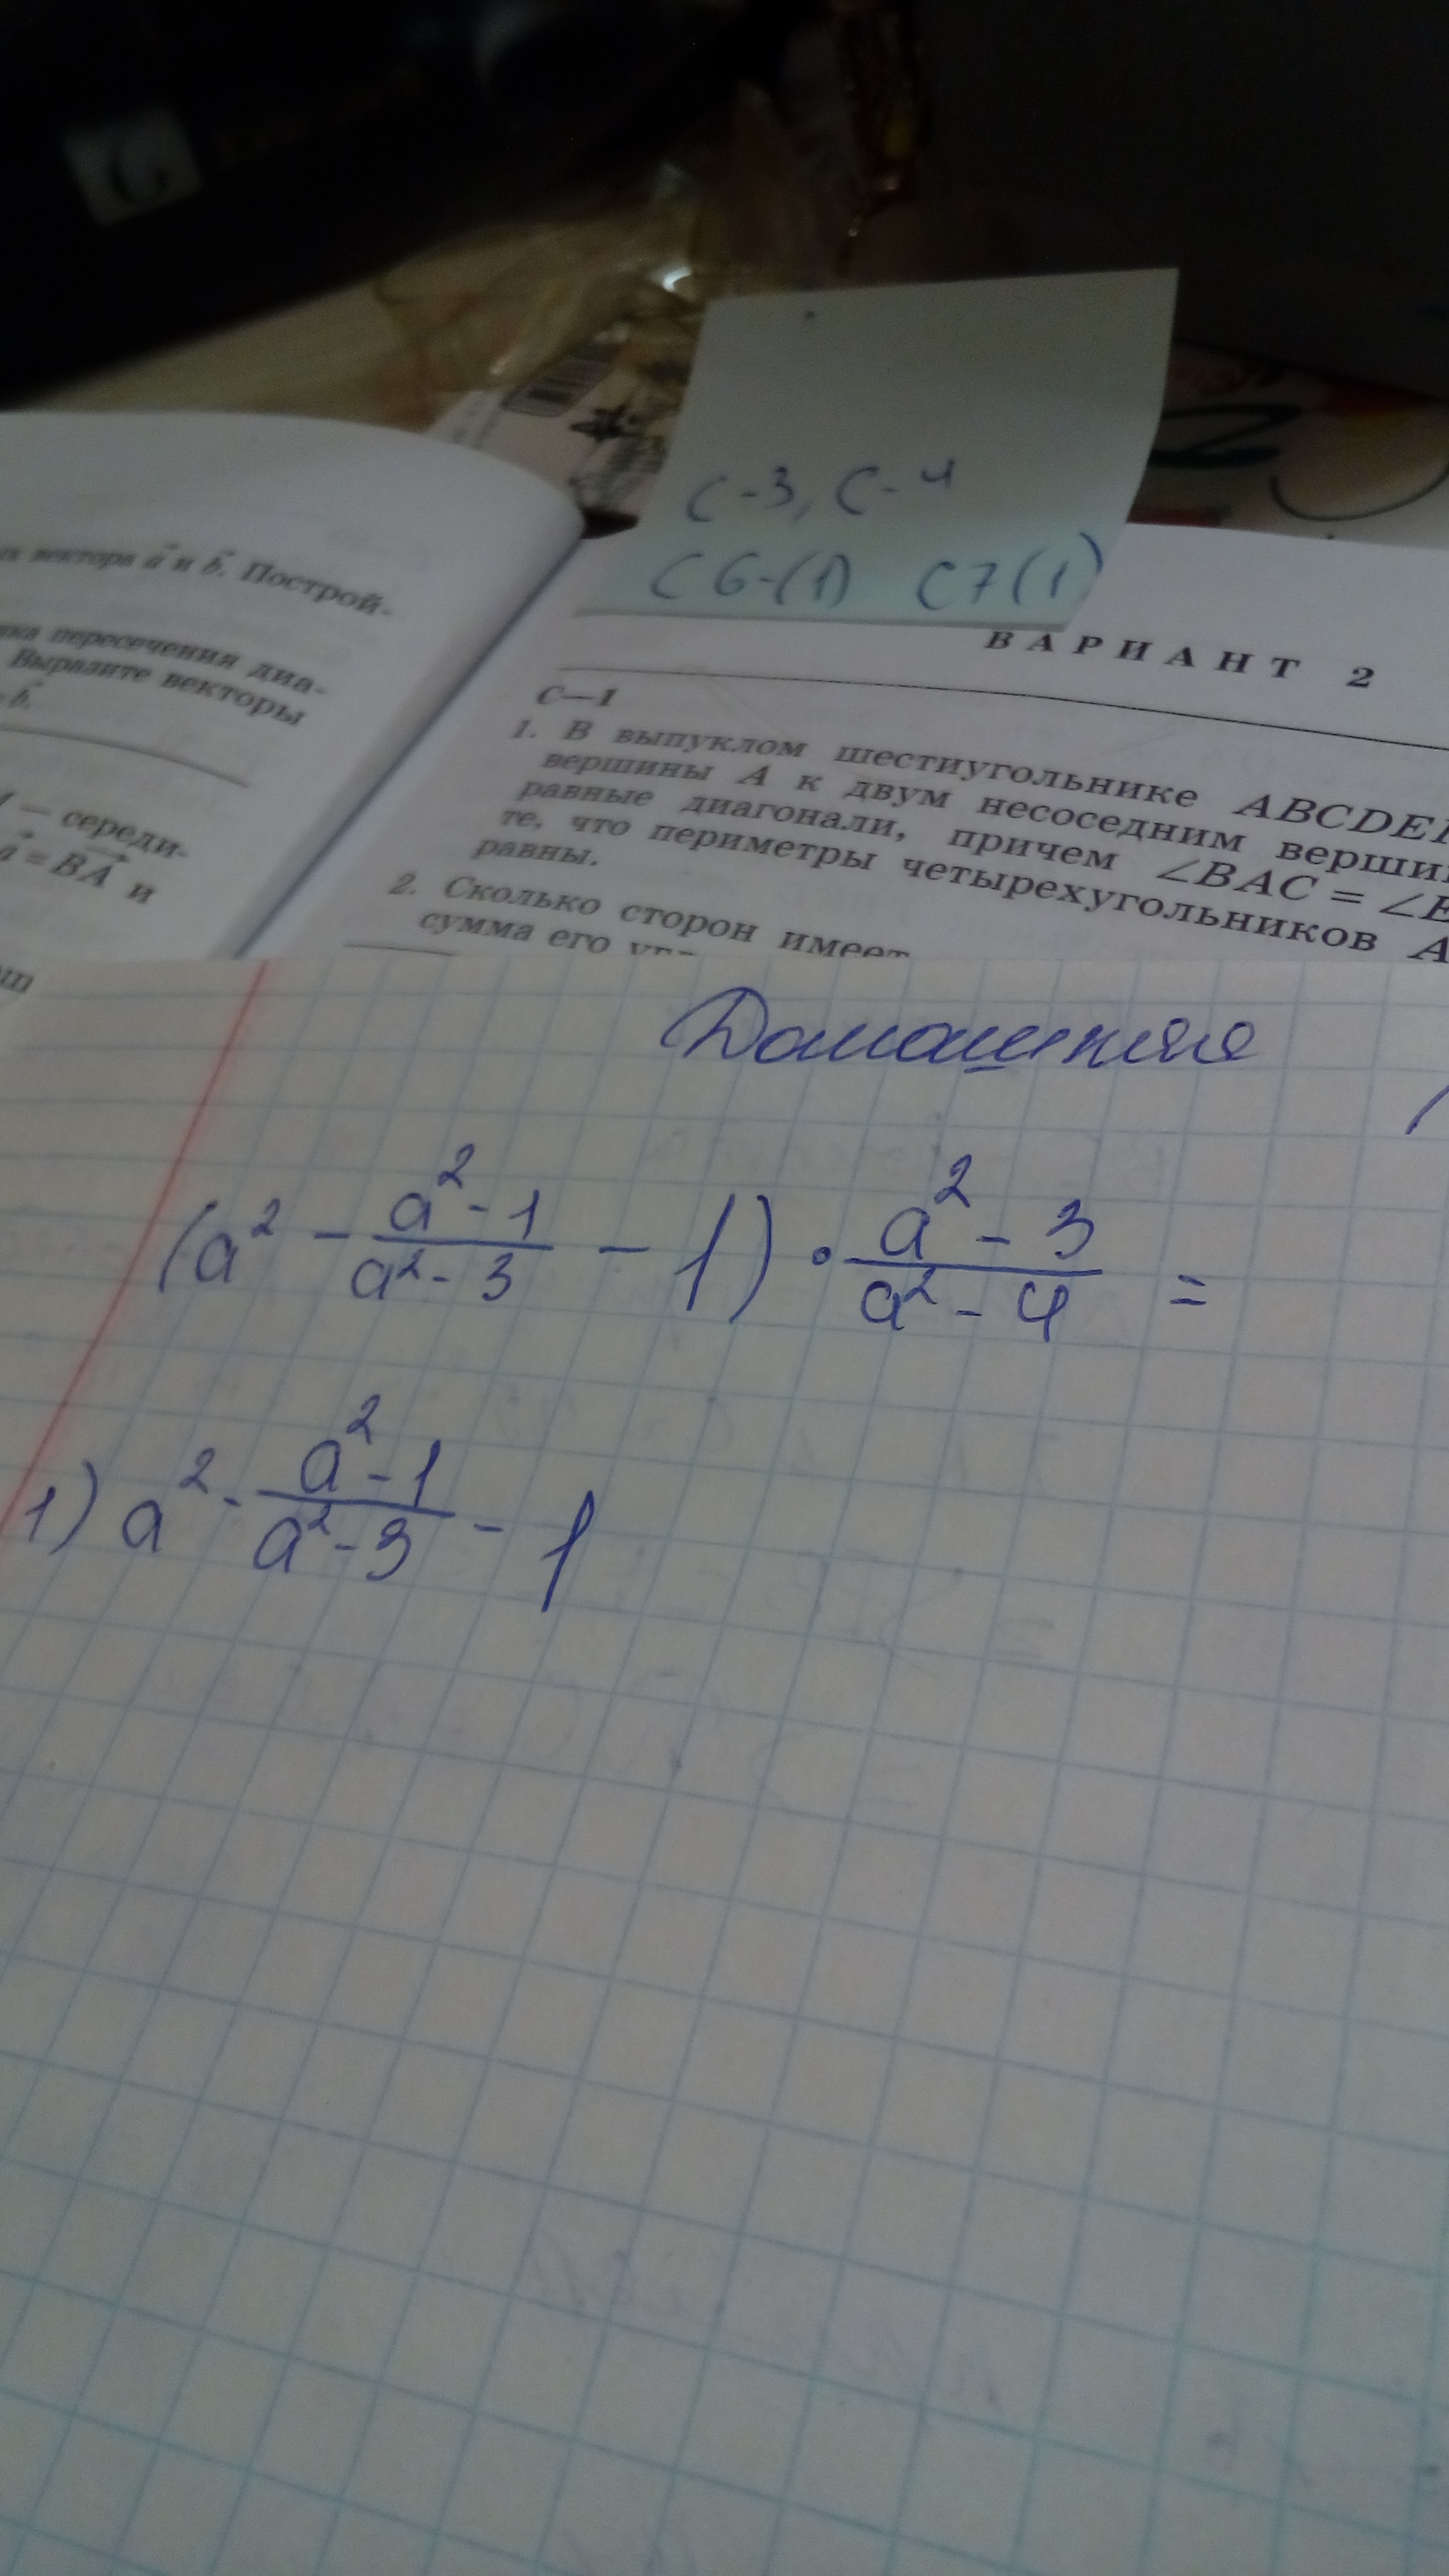 С-3, С-4
С6-(1) С7(1)
вектора a⃗ и b⃗. Построй-
пересечения диа-
Выразите векторы
b⃗.
— середи-
a⃗ = BA⃗ и
ВАРИАНТ 2
С—1
1. В выпуклом шестиугольнике
вершины A к двум несоседним
равные диагонали, причем ∠BAC = ∠
те, что периметры четырехугольников
равны.
2. Сколько сторон имеет
сумма его
Домашняя
(a² - \frac{a² - 1}{a² - 3} - 1) · \frac{a² - 3}{a² - 4} =
1) a² - \frac{a² - 1}{a² - 3} - 1